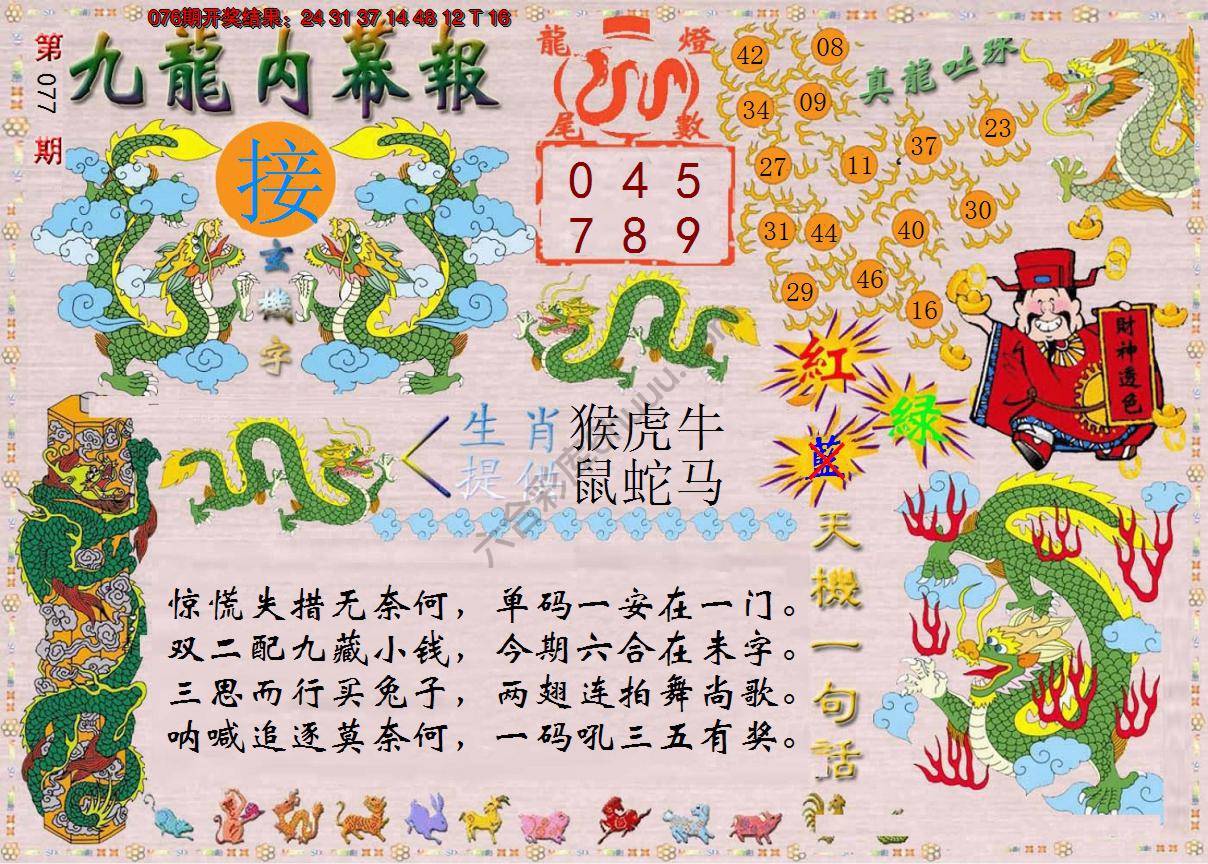 076期开奖结果：24 31 37 14 48 12 T 16
第077期
九龍内幕報
接
玄機字
龍燈
尾數
0 4 5
7 8 9
真龍吐珠
42 08
34 09
27 11 37 23
31 44 40 30
29 46 16
財神透色
紅
綠
藍
生肖 猴虎牛
提供 鼠蛇马
天機一句話
惊慌失措无奈何，单码一安在一门。
双二配九藏小钱，今期六合在朱字。
三思而行买兔子，两翅连拍舞尚歌。
呐喊追逐莫奈何，一码吼三五有奖。